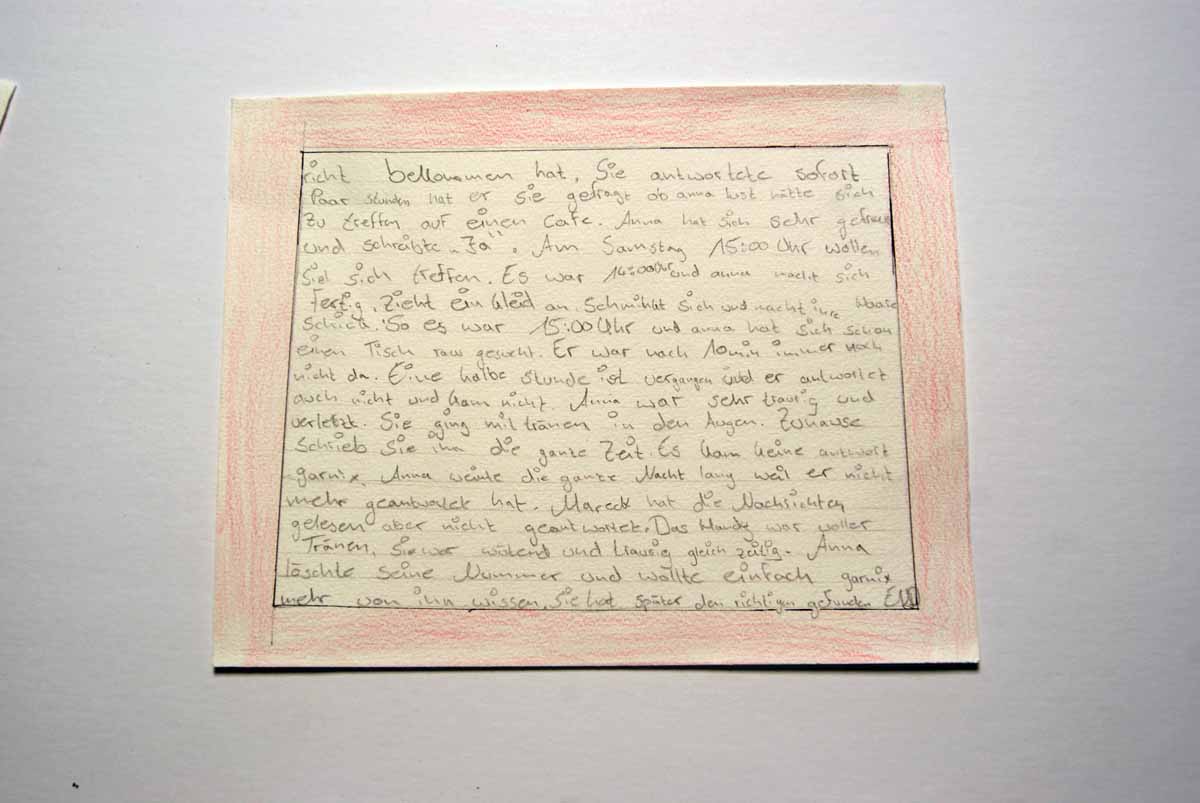 richt bekommen hat, Sie antwortete sofort
Paar stunden hat er sie gefragt ob anna lust hätte sich
zu treffen auf einen Cafe. Anna hat sich sehr gefreut
und schreibte „Ja“. Am Samstag 15:00 Uhr wollen
Sie sich treffen. Es war 14:00Uhr und anna macht sich
Fertig, Zieht ein kleid an. Schminkt sich und macht ihre Haare
Schick. So es war 15:00 Uhr und anna hat sich schon
einen Tisch raus gesucht. Er war nach 10min immer noch
nicht da. Eine halbe stunde ist vergangen und er antwortet
auch nicht und kam nicht. Anna war sehr traurig und
verletzt. Sie ging mit tränen in den Augen. Zuhause
Schrieb Sie ihn die ganze Zeit. Es kam keine antwort
garnix. Anna weinte die ganze Nacht lang weil er nicht
mehr geantwortet hat. Mareck hat die Nachsichten
gelesen aber nicht geantwortet. Das Handy war voller
Tränen, Sie war wütend und traurig gleich zeitig. Anna
löschte seine Nummer und wollte einfach garnix
mehr von ihn wissen. Sie hat später den richtigen gefunden